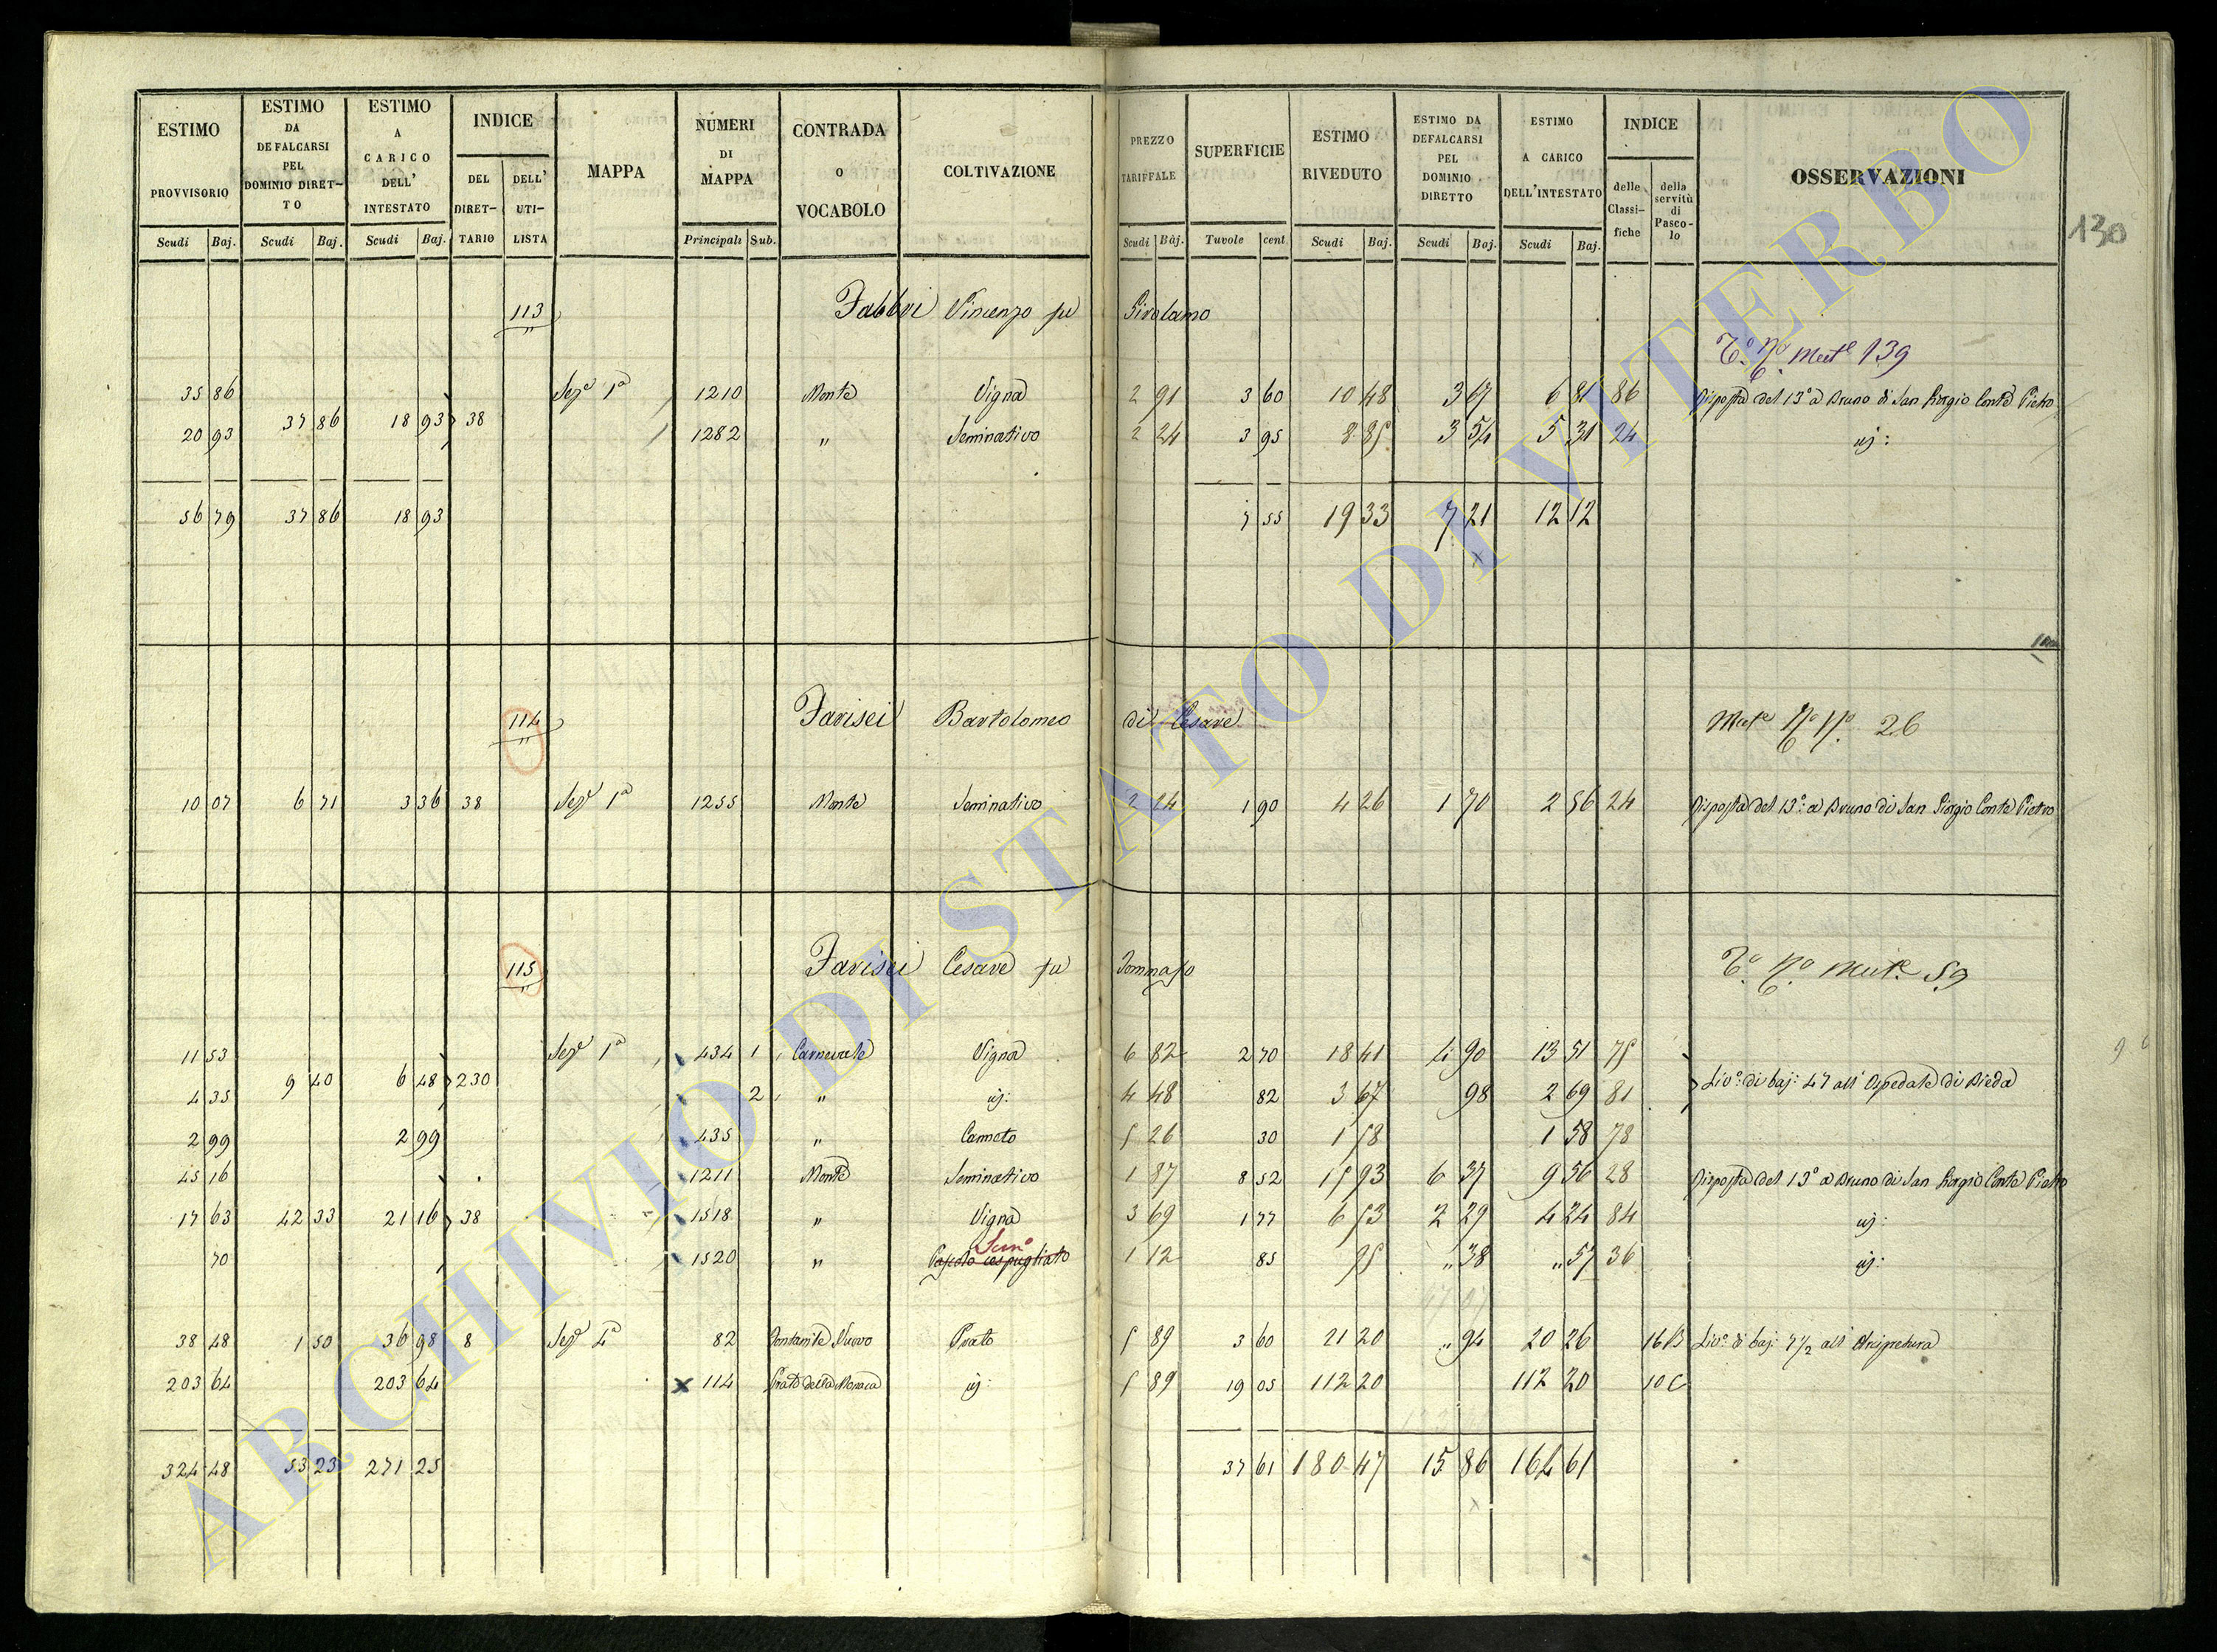 ESTIMO PROVVISORIO Scudi Baj.
ESTIMO DA DEFALCARSI PEL DOMINIO DIRETTO Scudi Baj.
ESTIMO A CARICO DELL' INTESTATO Scudi Baj.
INDICE DEL DIRETTARIO DELL' UTILISTA
MAPPA
NUMERI DI MAPPA Principali Sub.
CONTRADA O VOCABOLO
COLTIVAZIONE
PREZZO TARIFFALE Scudi Baj.
SUPERFICIE Tavole cent.
ESTIMO RIVEDUTO Scudi Baj.
ESTIMO DA DEFALCARSI PEL DOMINIO DIRETTO Scudi Baj.
ESTIMO A CARICO DELL'INTESTATO Scudi Baj.
INDICE delle Classifiche della servitù di Pascolo
OSSERVAZIONI
130
113 Fabbri Vincenzo fu Girolamo
139
35 86 Sez.e 1a 1210 Monte Vigna 2 91 3 60 10 48 3 67 6 81 86 Risposta del 13.o a Bruno di San Giorgio Conte Pietro
37 86 18 93 38
20 93 1282 " Seminativo 2 24 3 95 8 85 3 54 5 31 24 id:
56 79 37 86 18 93 7 55 19 33 7 21 12 12
114 Farisei Bartolomeo di Cesare
26
10 07 6 71 3 36 38 Sez.e 1a 1255 Monte Seminativo 2 24 1 90 4 26 1 70 2 56 24 Risposta del 13.o a Bruno di San Giorgio Conte Pietro
115 Farisei Cesare fu Tommaso
59
11 53 Sez.e 1a 434 1 Carnevale Vigna 6 82 2 70 18 41 4 90 13 51 75
9 40 6 48 230 Liv.o di baj: 47 all' Ospedale di Bieda
4 35 2 " id: 4 48 82 3 67 98 2 69 81
2 99 2 99 435 " Canneto 5 26 30 1 58 1 58 78
45 16 1211 Monte Seminativo 1 87 8 52 15 93 6 37 9 56 28 Risposta del 13.o a Bruno di San Giorgio Conte Pietro
17 63 42 33 21 16 38 1518 " Vigna 3 69 1 77 6 53 2 29 4 24 84 id:
Sem.o
70 1520 " Pascolo cespugliato 1 12 85 95 " 38 " 57 36 id:
38 48 1 50 36 98 8 Sez.e 4a 82 Fontanile Nuovo Prato 5 89 3 60 21 20 " 94 20 26 16 B Liv.o di baj: 7 1/2 all' Arcipretura
203 64 203 64 x 114 Prato della Monaca id: 5 89 19 05 112 20 112 20 10 C
324 48 53 23 271 25 37 61 180 47 15 86 164 61
ARCHIVIO DI STATO DI VITERBO